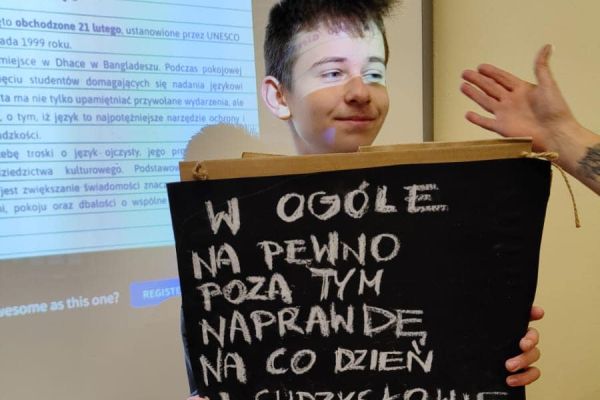 to obchodzone 21 lutego, ustanowione przez UNESCO
ada 1999 roku.
miejsce w Dhace w Bangladeszu. Podczas pokojowej
ęciu studentów domagających się nadania językowi
ta ma nie tylko upamiętniać przywołane wydarzenie, ale
, o tym, iż język to najpotężniejsze narzędzie ochrony i
udzkości.
ebę troski o język ojczysty, jego
dziedzictwa kulturowego.
jest zwiększanie świadomości
ni, pokoju oraz dbałości o wspólne
wesome as this one?
REGISTE
W OGÓLE
NA PEWNO
POZA TYM
NAPRAWDĘ
NA CO DZIEŃ